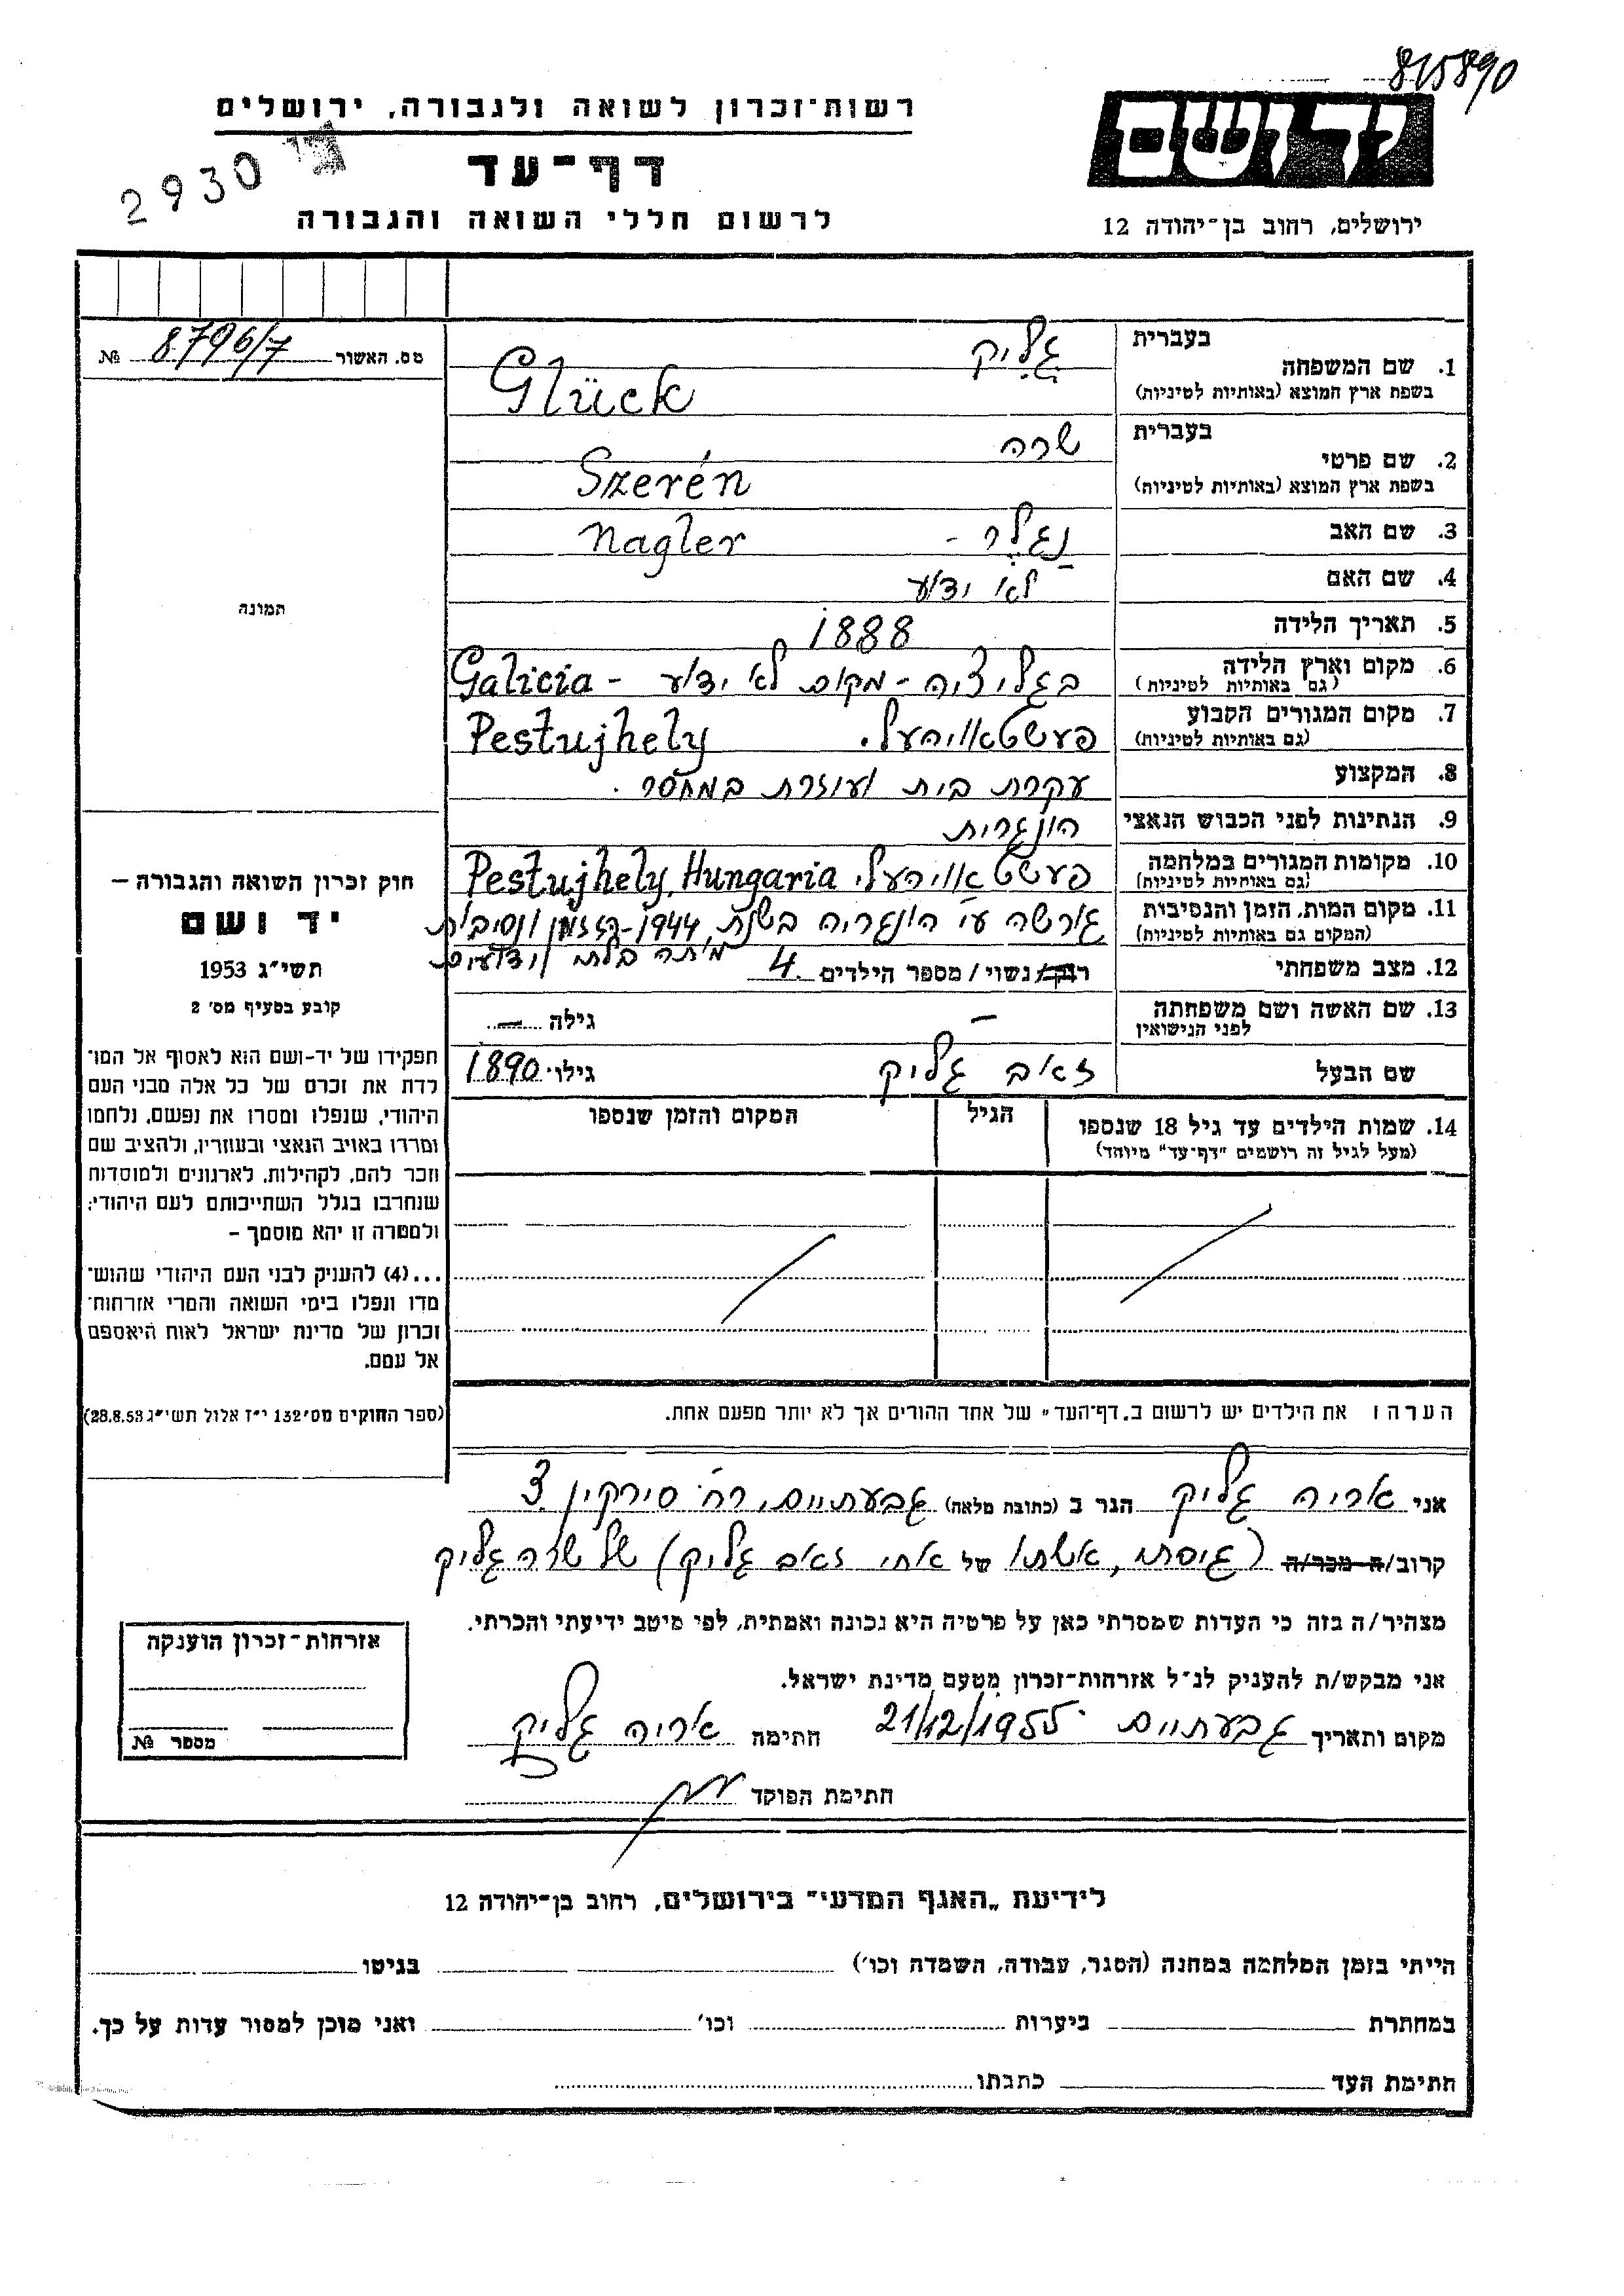 815890
יד ושם
ירושלים, רחוב בן־יהודה 12
רשות־זכרון לשואה ולגבורה, ירושלים
דף־עד
לרשום חללי השואה והגבורה
2930
מס. האשור 8796/7 №
תמונה
1. שם המשפחה
בעברית גליק
בשפת ארץ המוצא (באותיות לטיניות) Glück
2. שם פרטי
בעברית שרה
בשפת ארץ המוצא (באותיות לטיניות) Szerén
3. שם האב נגלר - Nagler
4. שם האם לא ידוע
5. תאריך הלידה 1888
6. מקום וארץ הלידה
(גם באותיות לטיניות) בגליציה - מקום לא ידוע - Galicia
7. מקום המגורים הקבוע
(גם באותיות לטיניות) פעשטאויהעלי. Pestujhely
8. המקצוע עקרת בית ועוזרת במחסר.
9. הנתינות לפני הכבוש הנאצי הונגרית
10. מקומות המגורים במלחמה
(גם באותיות לטיניות) פעשטאויהעלי, Pestujhely, Hungaria
11. מקום המות, הזמן והנסיבות
(המקום גם באותיות לטיניות) גורשה ע"י הונגריה בשנת 1944- הזמן ונסיבות
מיתה בלתי ידועים
12. מצב משפחתי רוק/נשוי/מספר הילדים 4
13. שם האשה ושם משפחתה
לפני הנישואין - גילה -
שם הבעל זאב גליק גילו 1890
14. שמות הילדים עד גיל 18 שנספו הגיל המקום והזמן שנספו
(מעל לגיל זה רושמים "דף־עד" מיוחד)
הערה: את הילדים יש לרשום ב„דף־העד" של אחד ההורים אך לא יותר מפעם אחת.
חוק זכרון השואה והגבורה –
יד ושם
תשי״ג 1953
קובע בסעיף מס׳ 2
תפקידו של יד-ושם הוא לאסוף אל המו־
לדת את זכרם של כל אלה מבני העם
היהודי, שנפלו ומסרו את נפשם, נלחמו
ומרדו באויב הנאצי ובעוזריו, ולהציב שם
וזכר להם, לקהילות, לארגונים ולמוסדות
שנחרבו בגלל השתייכותם לעם היהודי;
ולמטרה זו יהא מוסמך –
...(4) להעניק לבני העם היהודי שהוש־
מדו ונפלו בימי השואה והמרי אזרחות־
זכרון של מדינת ישראל לאות היאספם
אל עמם.
(ספר החוקים מס׳ 132 י״ז אלול תשי״ג 28.8.53)
אני אריה גליק הגר ב (כתובת מלאה) גבעתיים, רח' סירקין 3
קרוב/ה מכר/ה (גיסתי, אשתו של אחי זאב גליק) של שרה גליק
מצהיר/ה בזה כי העדות שמסרתי כאן על פרטיה היא נכונה ואמתית, לפי מיטב ידיעתי והכרתי.
אני מבקש/ת להעניק לנ״ל אזרחות־זכרון מטעם מדינת ישראל.
מקום ותאריך גבעתיים 21/12/1955 חתימה אריה גליק
חתימת הפוקד
אזרחות־זכרון הוענקה
מספר №
לידיעת „האגף המדעי" בירושלים, רחוב בן־יהודה 12
הייתי בזמן המלחמה במחנה (הסגר, עבודה, השמדה וכו׳) בגיטו
במחתרת ביערות וכו׳ ואני מוכן למסור עדות על כך.
חתימת העד כתבתו